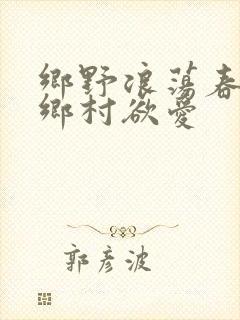 鄉野浪蕩春
鄉村欲愛
郭彥波